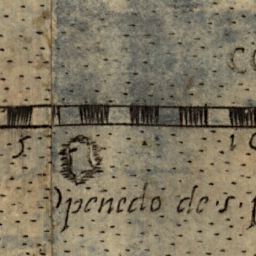 5
penedo de.s.